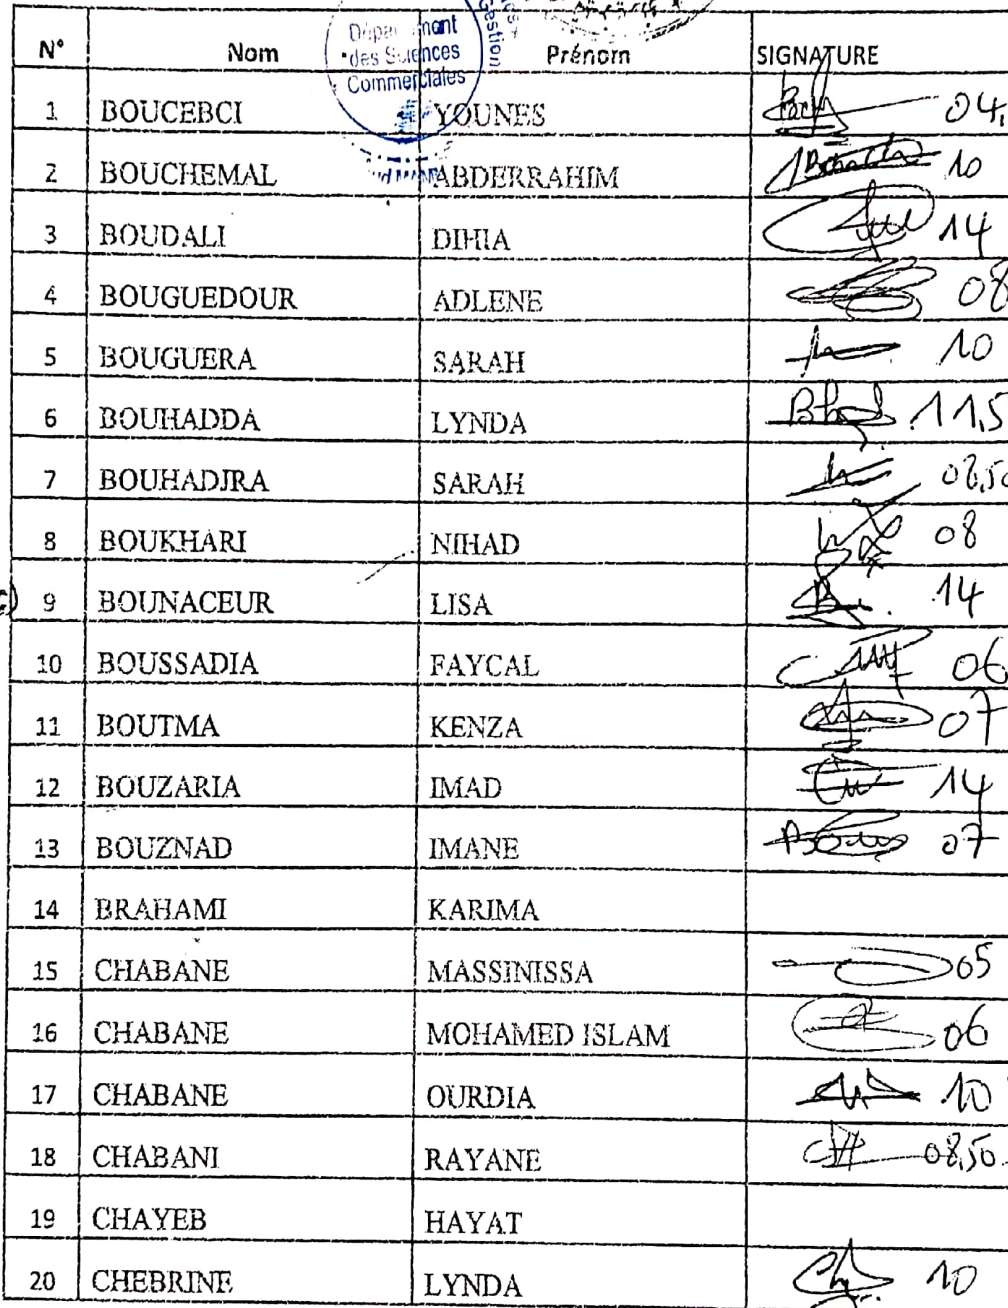 Département
des Sciences
Commerciales
Gestion
N° Nom Prénom SIGNATURE
1 BOUCEBCI YOUNES 04,
2 BOUCHEMAL ABDERRAHIM 10
3 BOUDALI DIHIA 14
4 BOUGUEDOUR ADLENE 08
5 BOUGUERA SARAH 10
6 BOUHADDA LYNDA 11,5
7 BOUHADJRA SARAH 08,50
8 BOUKHARI NIHAD 08
9 BOUNACEUR LISA 14
10 BOUSSADIA FAYCAL 06
11 BOUTMA KENZA 07
12 BOUZARIA IMAD 14
13 BOUZNAD IMANE 07
14 BRAHAMI KARIMA
15 CHABANE MASSINISSA 05
16 CHABANE MOHAMED ISLAM 06
17 CHABANE OURDIA 10
18 CHABANI RAYANE 08,50
19 CHAYEB HAYAT
20 CHEBRINE LYNDA 10